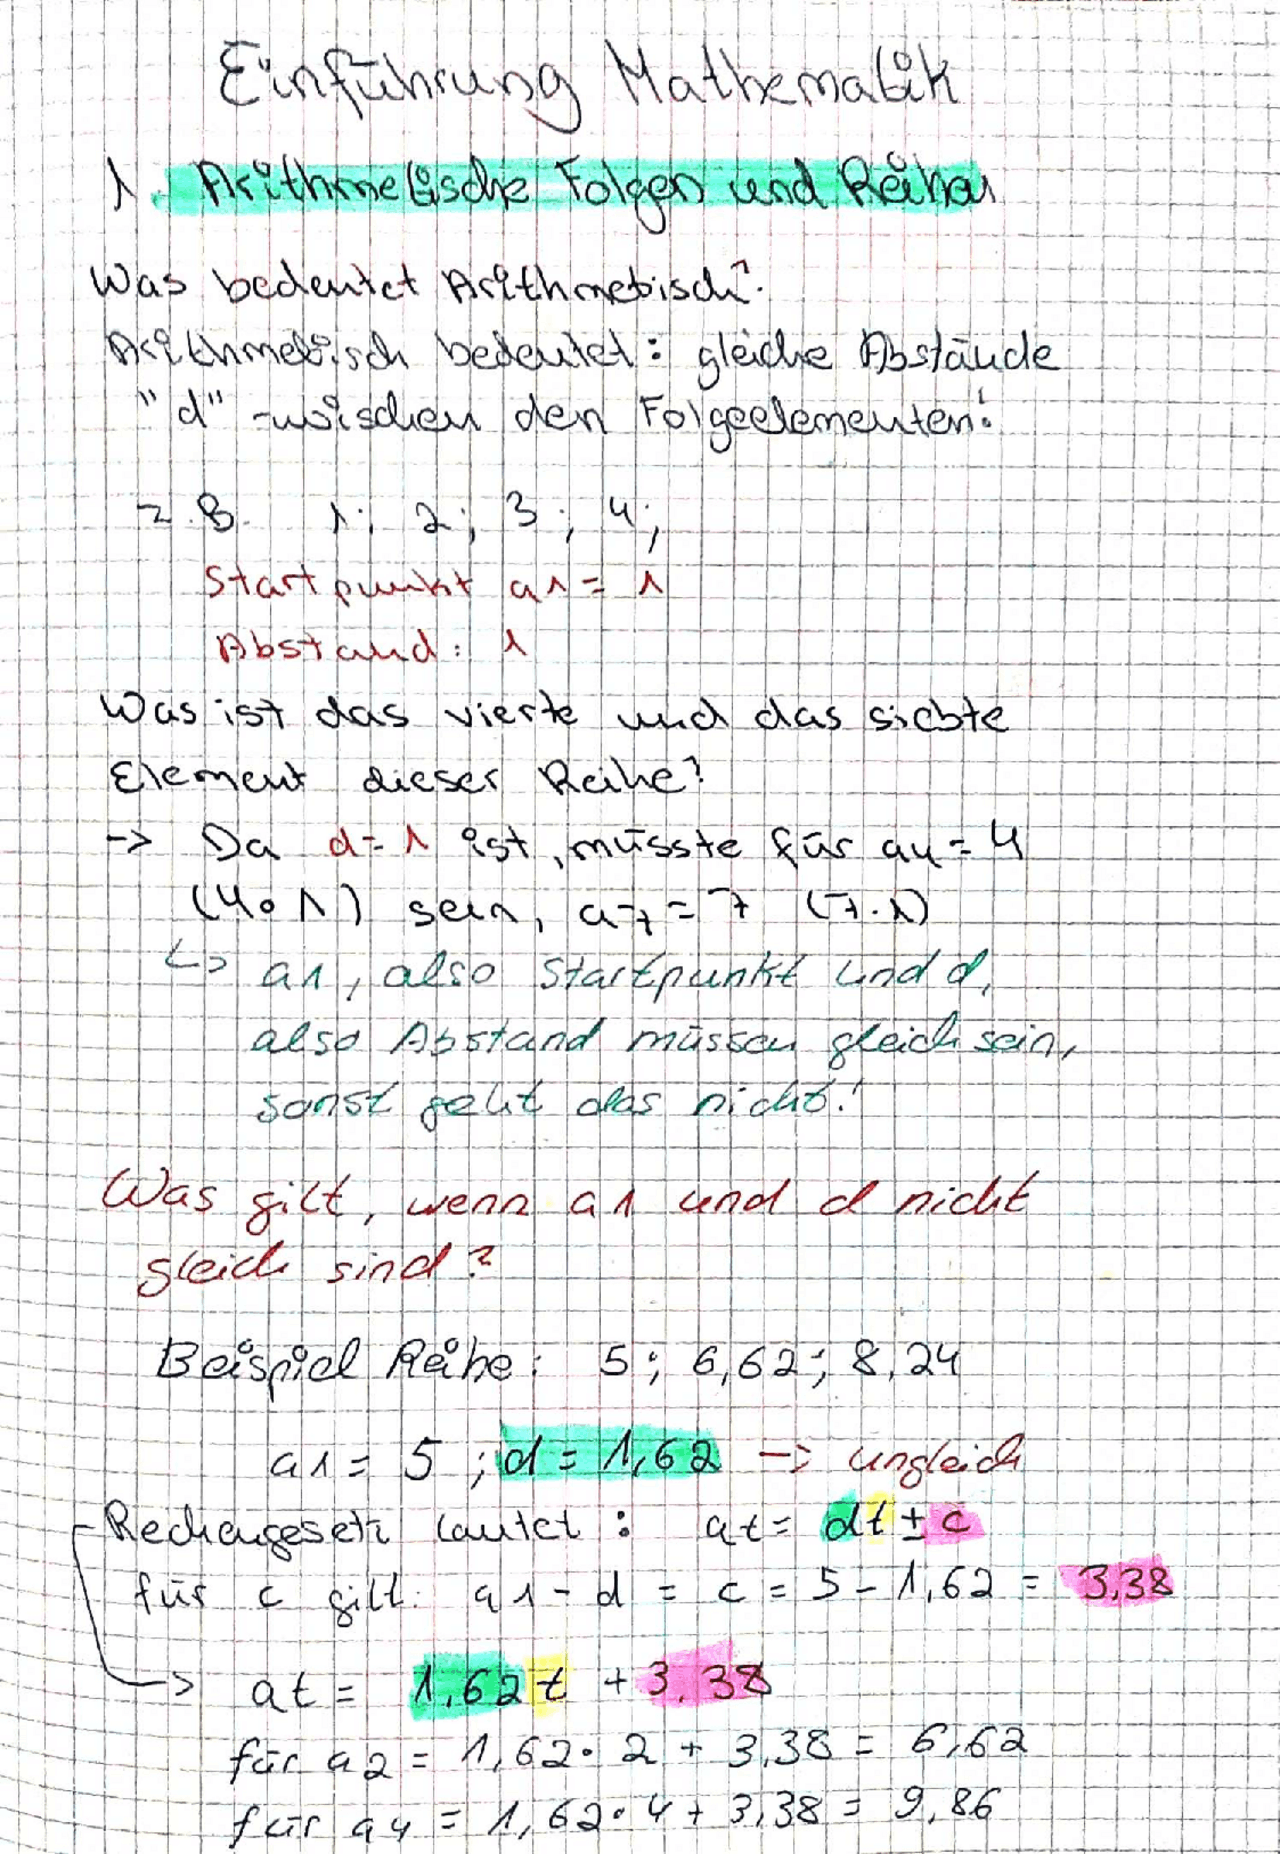 Einführung Mathematik
1. Arithmetische Folgen und Reihen
Was bedeutet Arithmetisch?
Arithmetisch bedeutet: gleiche Abstände
"d" zwischen den Folgeelementen!
z.B. 1; 2; 3; 4;
Startpunkt a1 = 1
Abstand: 1
Was ist das vierte und das siebte
Element dieser Reihe?
-> Da d=1 ist, müsste für a4 = 4
(4∘1) sein, a7 = 7 (7·1)
↳ a1, also Startpunkt und d,
also Abstand müssen gleich sein,
sonst geht das nicht!
Was gilt, wenn a1 und d nicht
gleich sind?
Beispiel Reihe: 5; 6,62; 8,24
a1 = 5 ; d = 1,62 -> ungleich
Rechengesetz lautet: at = dt ± c
für c gilt: a1 - d = c = 5 - 1,62 = 3,38
-> at = 1,62 t + 3,38
für a2 = 1,62 · 2 + 3,38 = 6,62
für a4 = 1,62 · 4 + 3,38 = 9,86